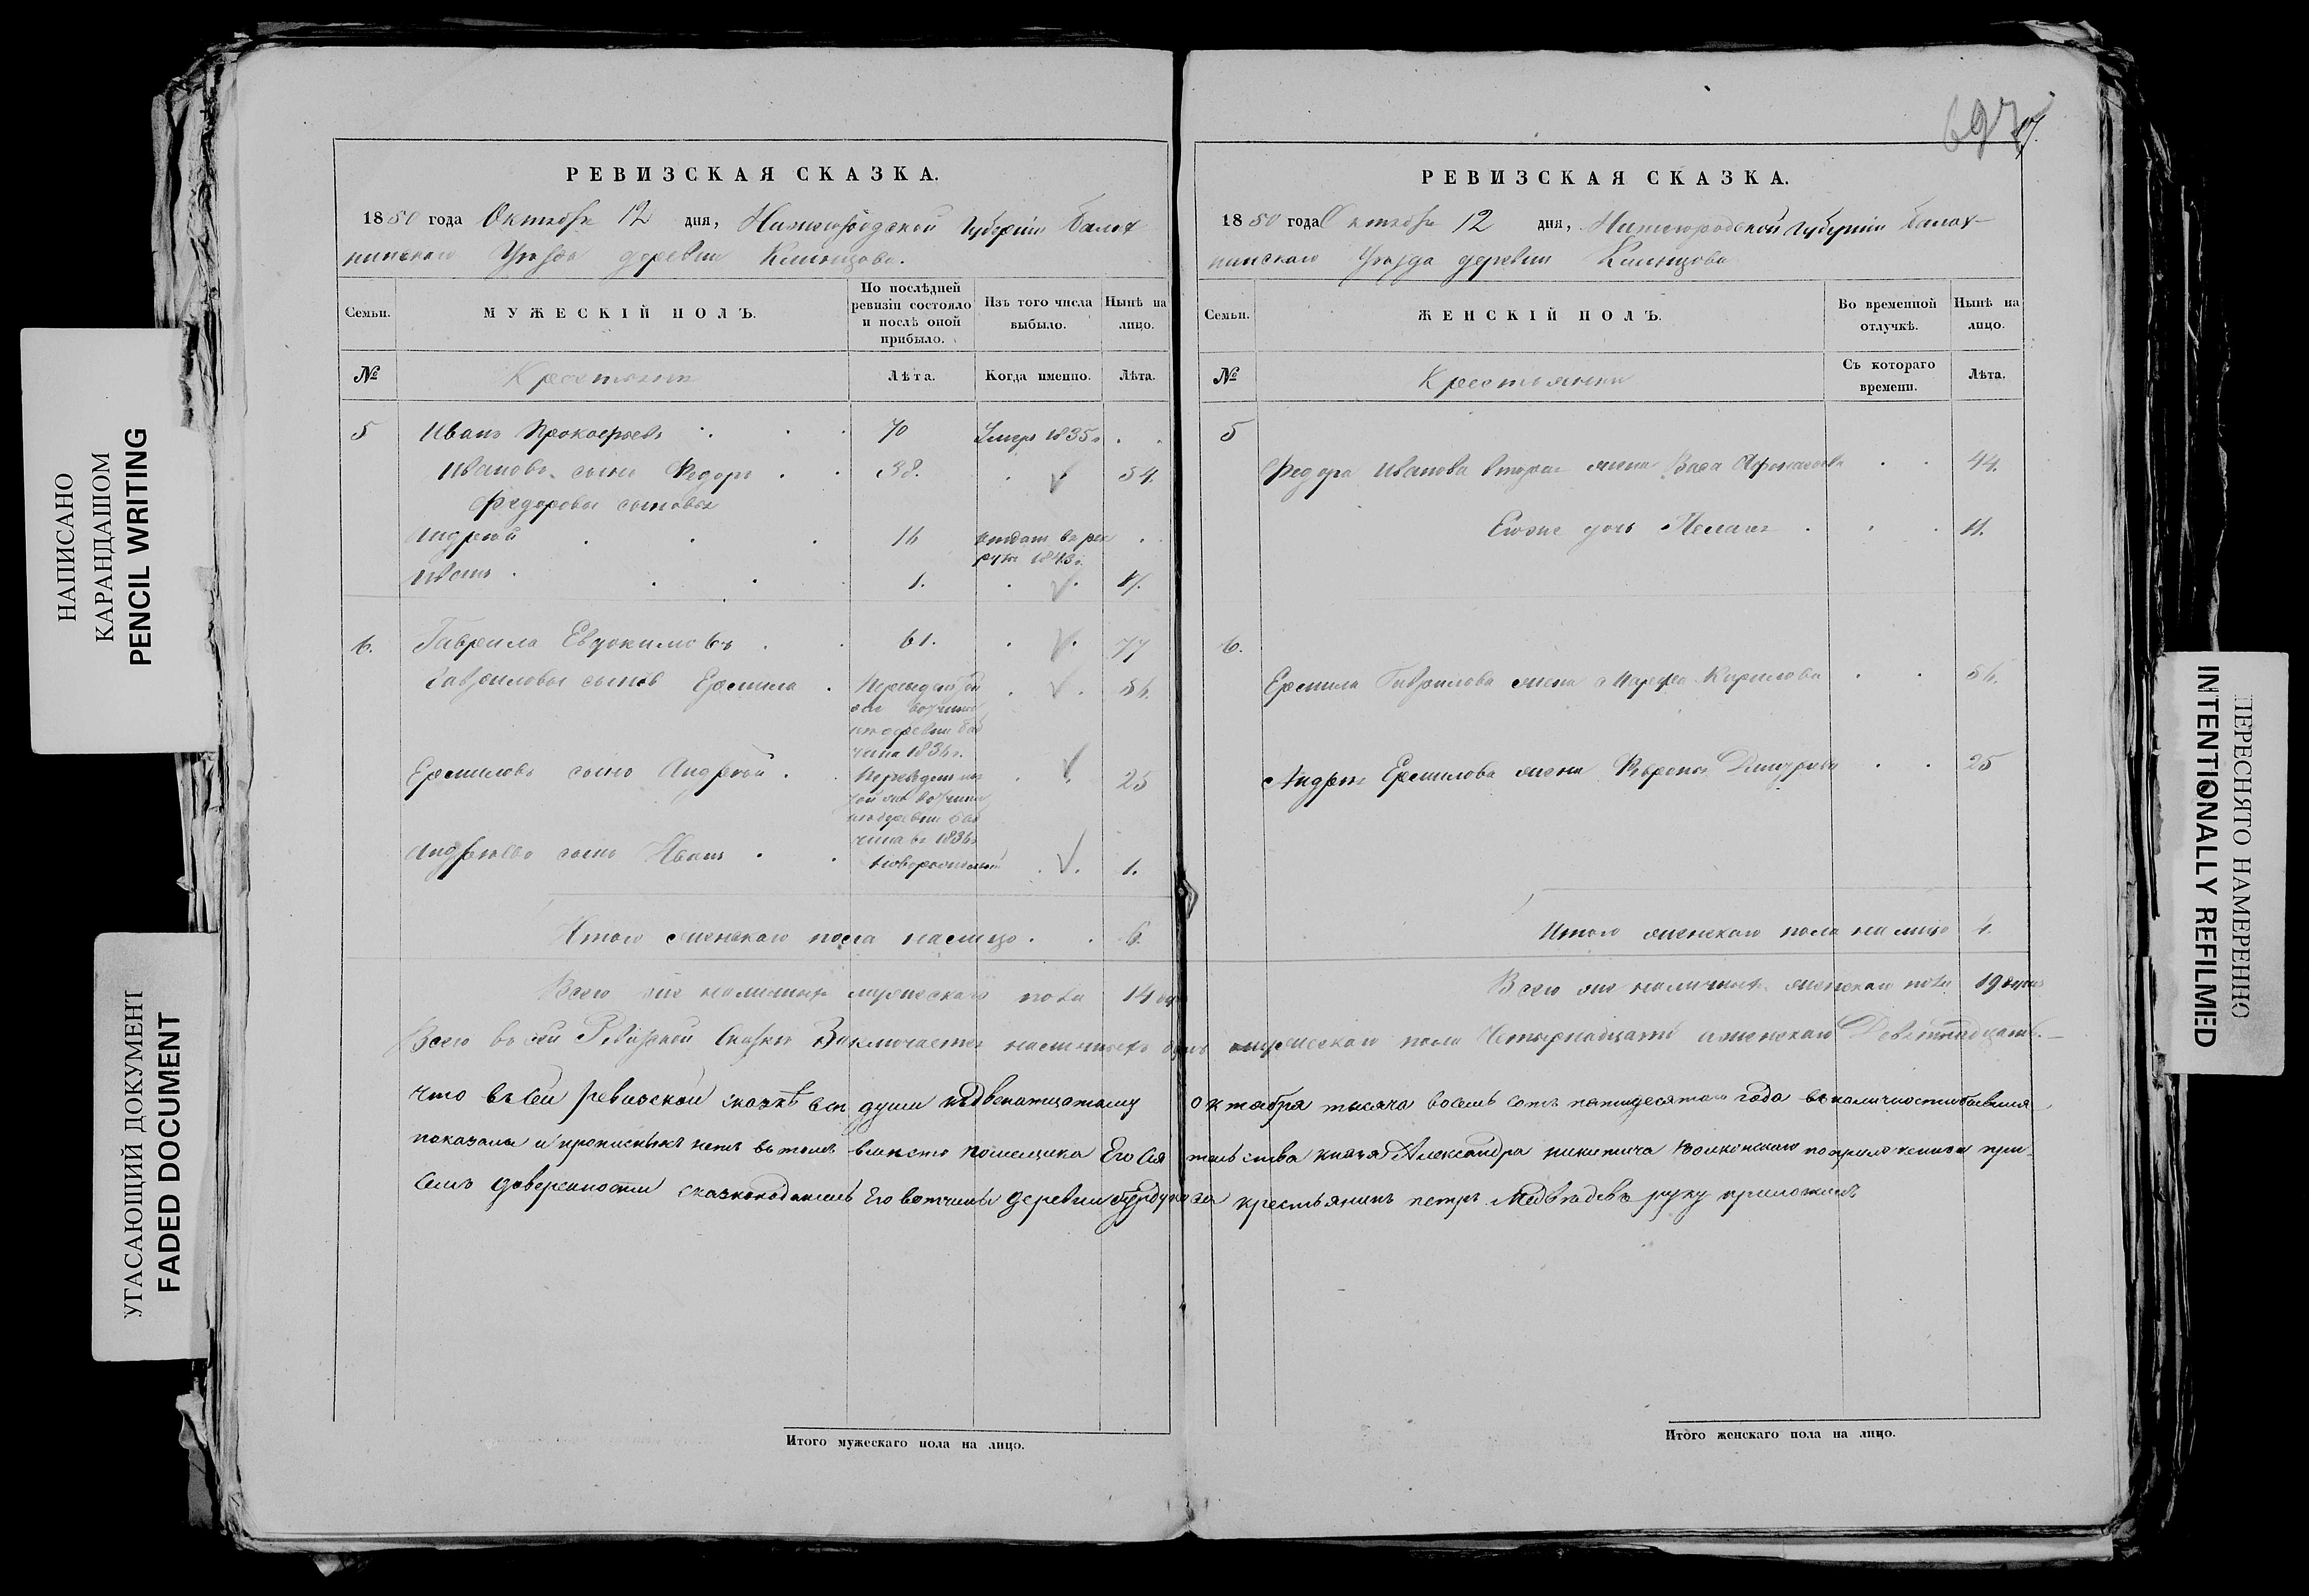 НАПИСАНО
КАРАНДАШОМ
PENCIL WRITING
УГАСАЮЩИЙ ДОКУМЕНТ
FADED DOCUMENT
РЕВИЗСКАЯ СКАЗКА.
1850 года Октября 12 дня, Нижегородской Губерніи Балах
нинскаго Уѣзда деревни
Семьи.
МУЖЕСКІЙ ПОЛЪ.
По послѣдней
ревизіи состояло
и послѣ оной
прибыло.
Изъ того числа
выбыло.
Нынѣ на
лицо.
№
Крестьяне
Лѣта.
Когда именно.
Лѣта.
5 Иванъ Прокофьевъ 70 Умеръ 1835г
Ивановъ сынъ Федоръ 38. 54.
Федоровы сыновья
Андрей 16 отдан в рек
руты 1843г.
Иванъ 1. 17.
6. Гаврила Евдокимовъ 61. 77
Гавриловъ сынъ Ермила 56.
1836г.
Ермиловъ сынъ Андрей 25
1836г
Андреевъ сынъ Иванъ новорожденный 1.
Итого пола налицо 6.
Всего же наличныхъ мужескаго пола 14
РЕВИЗСКАЯ СКАЗКА.
1850 года Октября 12 дня, Нижегородской Губерніи Балах-
нинскаго Уѣзда деревни
Семьи.
ЖЕНСКІЙ ПОЛЪ.
Во временной
отлучкѣ.
Нынѣ на
лицо.
№
Крестьянки
Съ котораго
времени.
Лѣта.
5
Федора Иванова вторая жена Васа 44.
Егоже дочь Пелагея 11.
6.
Ермила Гаврилова жена Кирилова 56.
Андрея Ермилова жена 25
Итого женскаго пола налицо 4.
Всего же наличныхъ женскаго пола 19 душъ
Всего в сей Ревизкой Сказке Заключается наличныхъ душъ мужескаго пола Четырнадцать и женскаго Девятнадцать.—
что въ сей ревизской сказкѣ все души къ двенатцатому октября тысяча восемь сотъ пятидесятаго года в наличности бывшия
показаны и прописныхъ нетъ в томъ вместо помещика Его Сиятельства князя Александра Никитича Волконскаго по приложенной при
семъ доверенности сказкоподатель Его вотчины деревни крестьянинъ петръ Медведевъ руку приложилъ
Итого мужескаго пола на лицо.
Итого женскаго пола на лицо.
ПЕРЕСНЯТО НАМЕРЕННО
INTENTIONALLY REFILMED